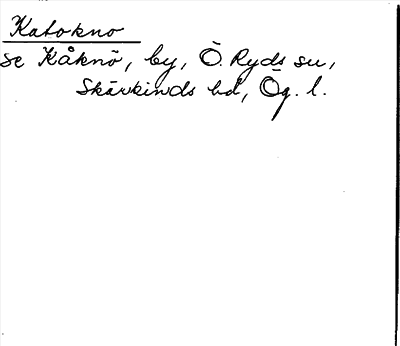 Katokno
se Kåknö, by, Ö. Ryds sn,
Skärkinds hd, Ög. l.